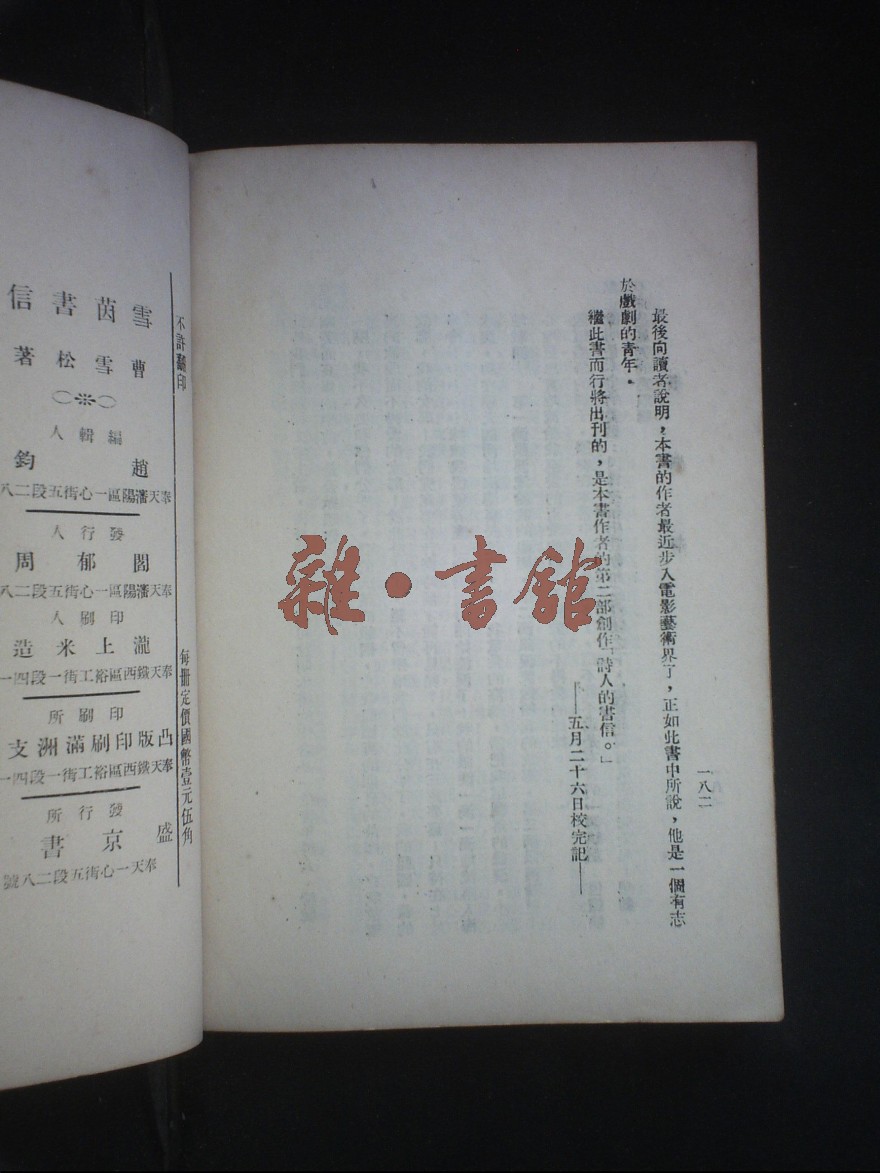 一八二
最後向讀者說明，本書的作者最近步入電影藝術界了，正如此書中所說，他是一個有志
於戲劇的青年．
繼此書而行將出刊的，是本書作者的第二部創作「詩人的書信。」
——五月二十六日校完記——
雜·書館
不許翻印
每冊定價國幣壹元伍角
雪茵書信
曹雪松著
編輯人
趙鈞
奉天瀋陽區一心街五段二八
發行人
閻郁周
奉天瀋陽區一心街五段二八
印刷人
瀧上米造
奉天鐵西區裕工街一段四一
印刷所
凸版印刷滿洲支
奉天鐵西區裕工街一段四一
發行所
盛京書
奉天一心街五段二八號